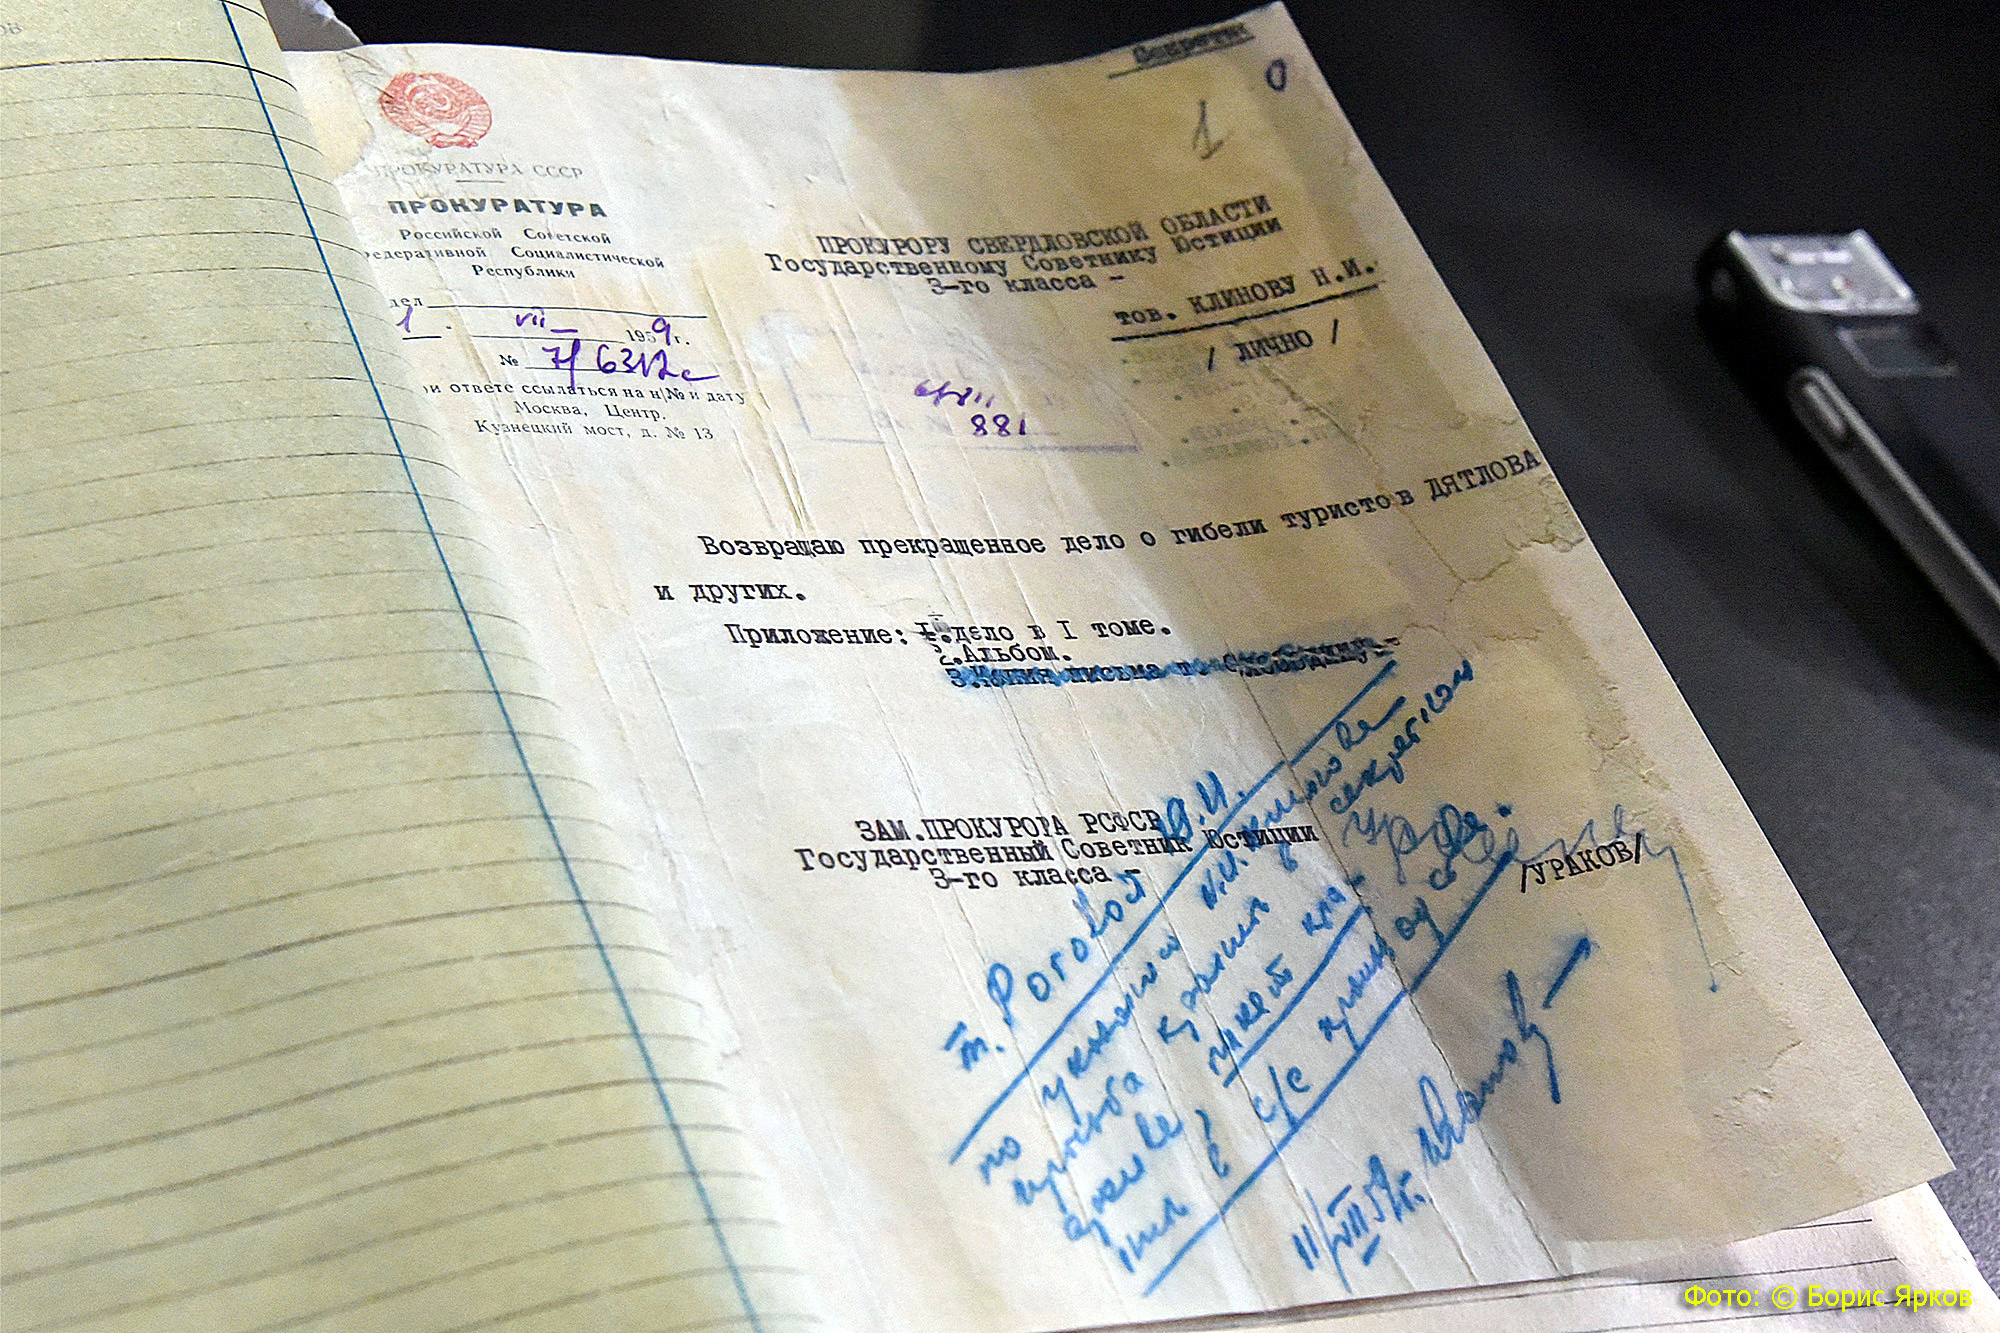 Секретно
0
1
ПРОКУРАТУРА СССР
ПРОКУРАТУРА
Российской Советской
Федеративной Социалистической
Республики
1 . VII 1959 г.
№ 7/6312с
ри ответе ссылаться на н/№ и дату
Москва, Центр,
Кузнецкий мост, д. № 13
ПРОКУРОРУ СВЕРДЛОВСКОЙ ОБЛАСТИ
Государственному Советнику Юстиции
3-го класса -
тов. КЛИНОВУ Н.И.
/ ЛИЧНО /
881
Возвращаю прекращенное дело о гибели туристов ДЯТЛОВА
и других.
Приложение: I.дело в I томе.
2.Альбом.
3.Копии письма
ЗАМ.ПРОКУРОРА РСФСР
Государственный Советник Юстиции
3-го класса -
/УРАКОВ/
т. Роговой
по указанию Н.И. Клинова
просьба хранить в секретном
архиве,
11/VII 59г.
Фото: © Борис Ярков